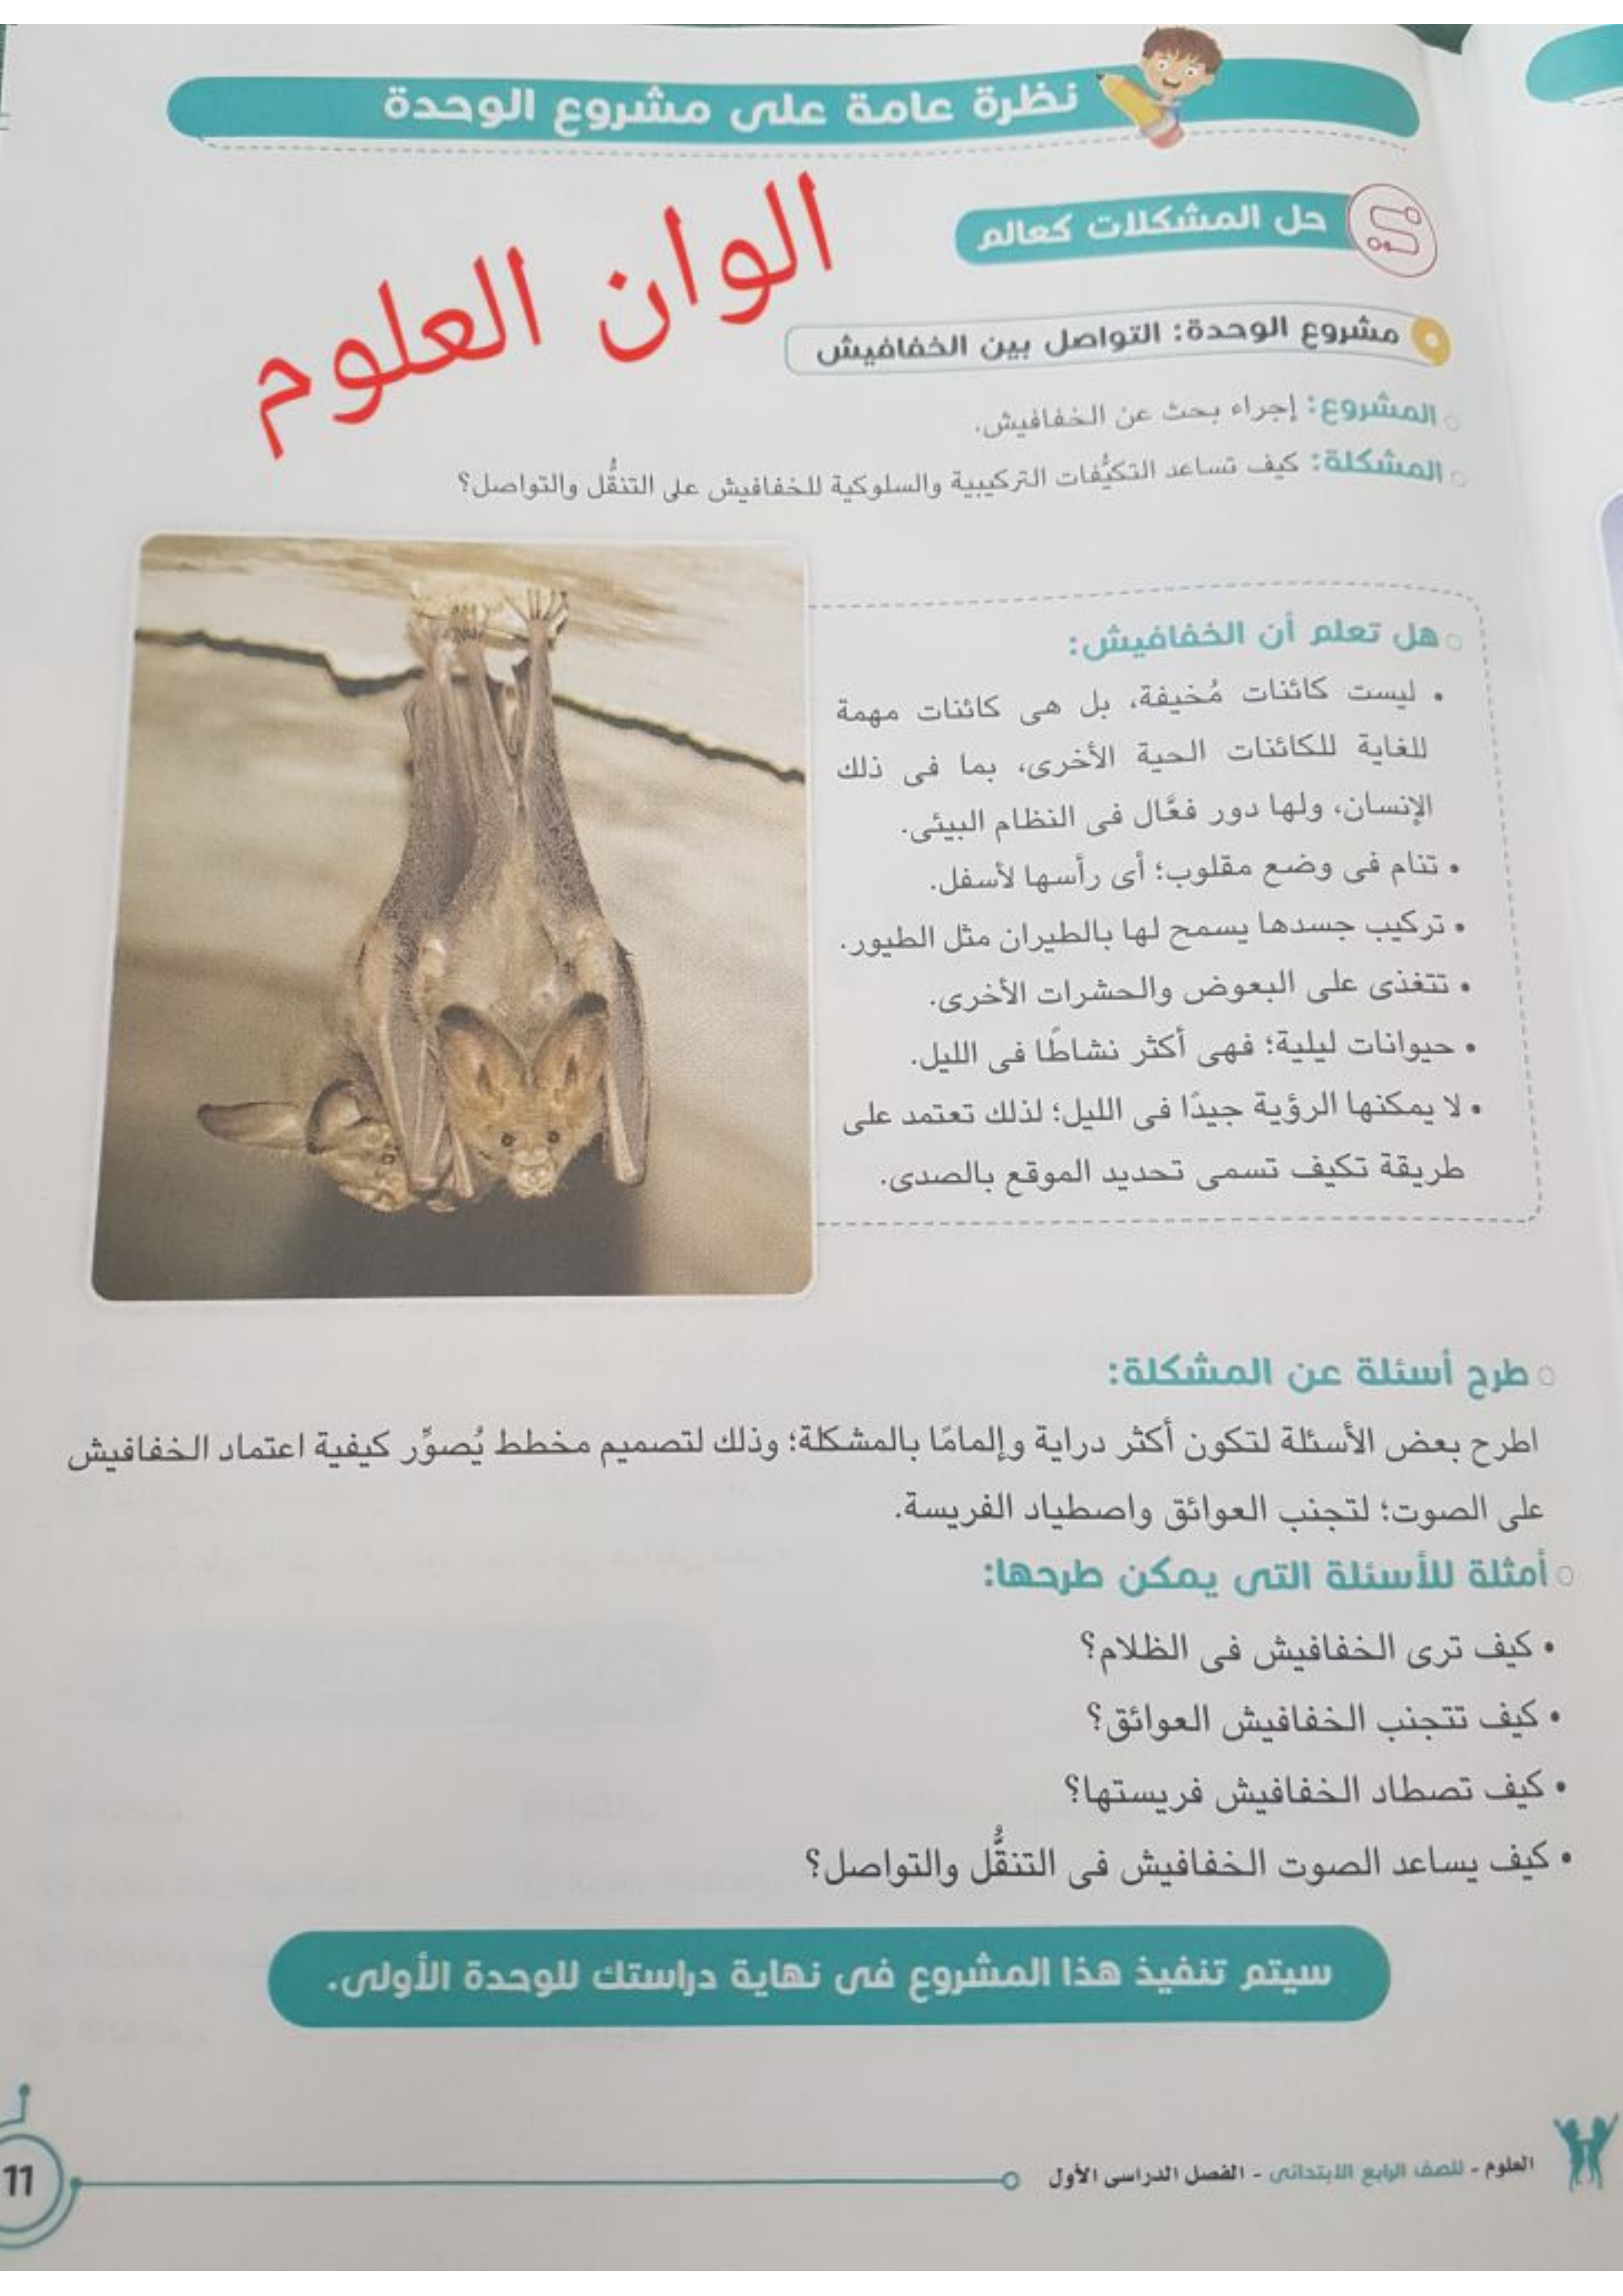 نظرة عامة على مشروع الوحدة
حل المشكلات كعالم
الوان العلوم
مشروع الوحدة: التواصل بين الخفافيش
المشروع: إجراء بحث عن الخفافيش.
المشكلة: كيف تساعد التكيُّفات التركيبية والسلوكية للخفافيش على التنقُّل والتواصل؟
هل تعلم أن الخفافيش:
• ليست كائنات مُخيفة، بل هى كائنات مهمة
للغاية للكائنات الحية الأخرى، بما فى ذلك
الإنسان، ولها دور فعَّال فى النظام البيئى.
• تنام فى وضع مقلوب؛ أى رأسها لأسفل.
• تركيب جسدها يسمح لها بالطيران مثل الطيور.
• تتغذى على البعوض والحشرات الأخرى.
• حيوانات ليلية؛ فهى أكثر نشاطًا فى الليل.
• لا يمكنها الرؤية جيدًا فى الليل؛ لذلك تعتمد على
طريقة تكيف تسمى تحديد الموقع بالصدى.
طرح أسئلة عن المشكلة:
اطرح بعض الأسئلة لتكون أكثر دراية وإلمامًا بالمشكلة؛ وذلك لتصميم مخطط يُصوِّر كيفية اعتماد الخفافيش
على الصوت؛ لتجنب العوائق واصطياد الفريسة.
أمثلة للأسئلة التى يمكن طرحها:
• كيف ترى الخفافيش فى الظلام؟
• كيف تتجنب الخفافيش العوائق؟
• كيف تصطاد الخفافيش فريستها؟
• كيف يساعد الصوت الخفافيش فى التنقُّل والتواصل؟
سيتم تنفيذ هذا المشروع فى نهاية دراستك للوحدة الأولى.
العلوم - للصف الرابع الابتدائى - الفصل الدراسى الأول
11